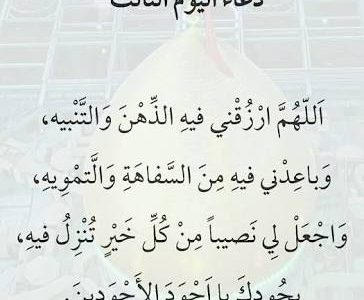 دعاء اليوم الثالث
اَللّهُمَّ ارْزُقْني فيهِ الذِّهْنَ وَالتَّنْبيه،
وَباعِدْني فيهِ مِنَ السَّفاهَةِ وَالَّتمْوِيهِ،
وَاجْعَلْ لِي نَصيباً مِنْ كُلِّ خَيْرٍ تُنْزِلُ فيهِ،
بِجُودِكَ يا اَجْوَدَ الأَجْوَدينَ.